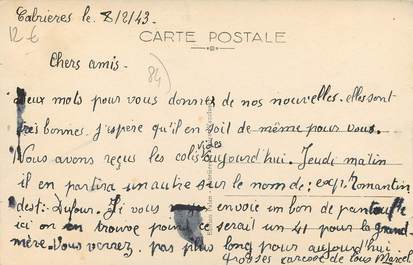 Cabrières le. 8/2/43.
12 €
CARTE POSTALE
Chers amis.
84
Deux mots pour vous donner de nos nouvelles. elles sont
très bonnes. j'espère qu'il en soit de même pour vous.
Nous avons reçus les colis vides aujourd'hui. Jeudi matin
il en partira un autre sur le nom de: exp: Romantin
dest: Dufour. Si vous envoie un bon de pantoufle
ici on en trouve pour ce serait un 41 pour la Grand
mère. Vous verrez. pas plus long pour aujourd'hui.
Grosses caresse de tous Marcel